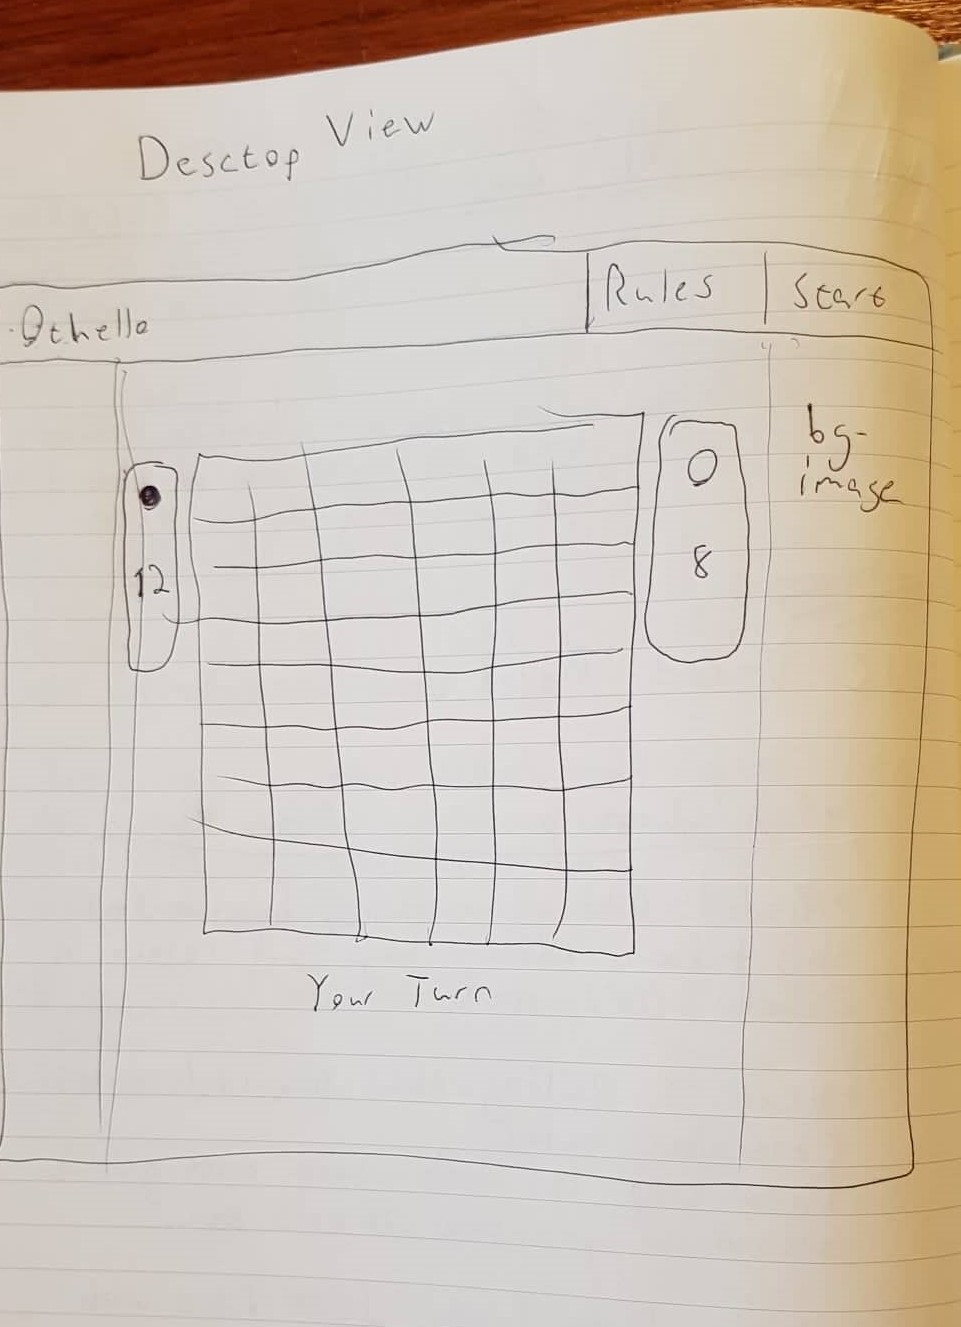 Desctop View
Othello
Rules
Start
bg-
image
12
8
Your Turn